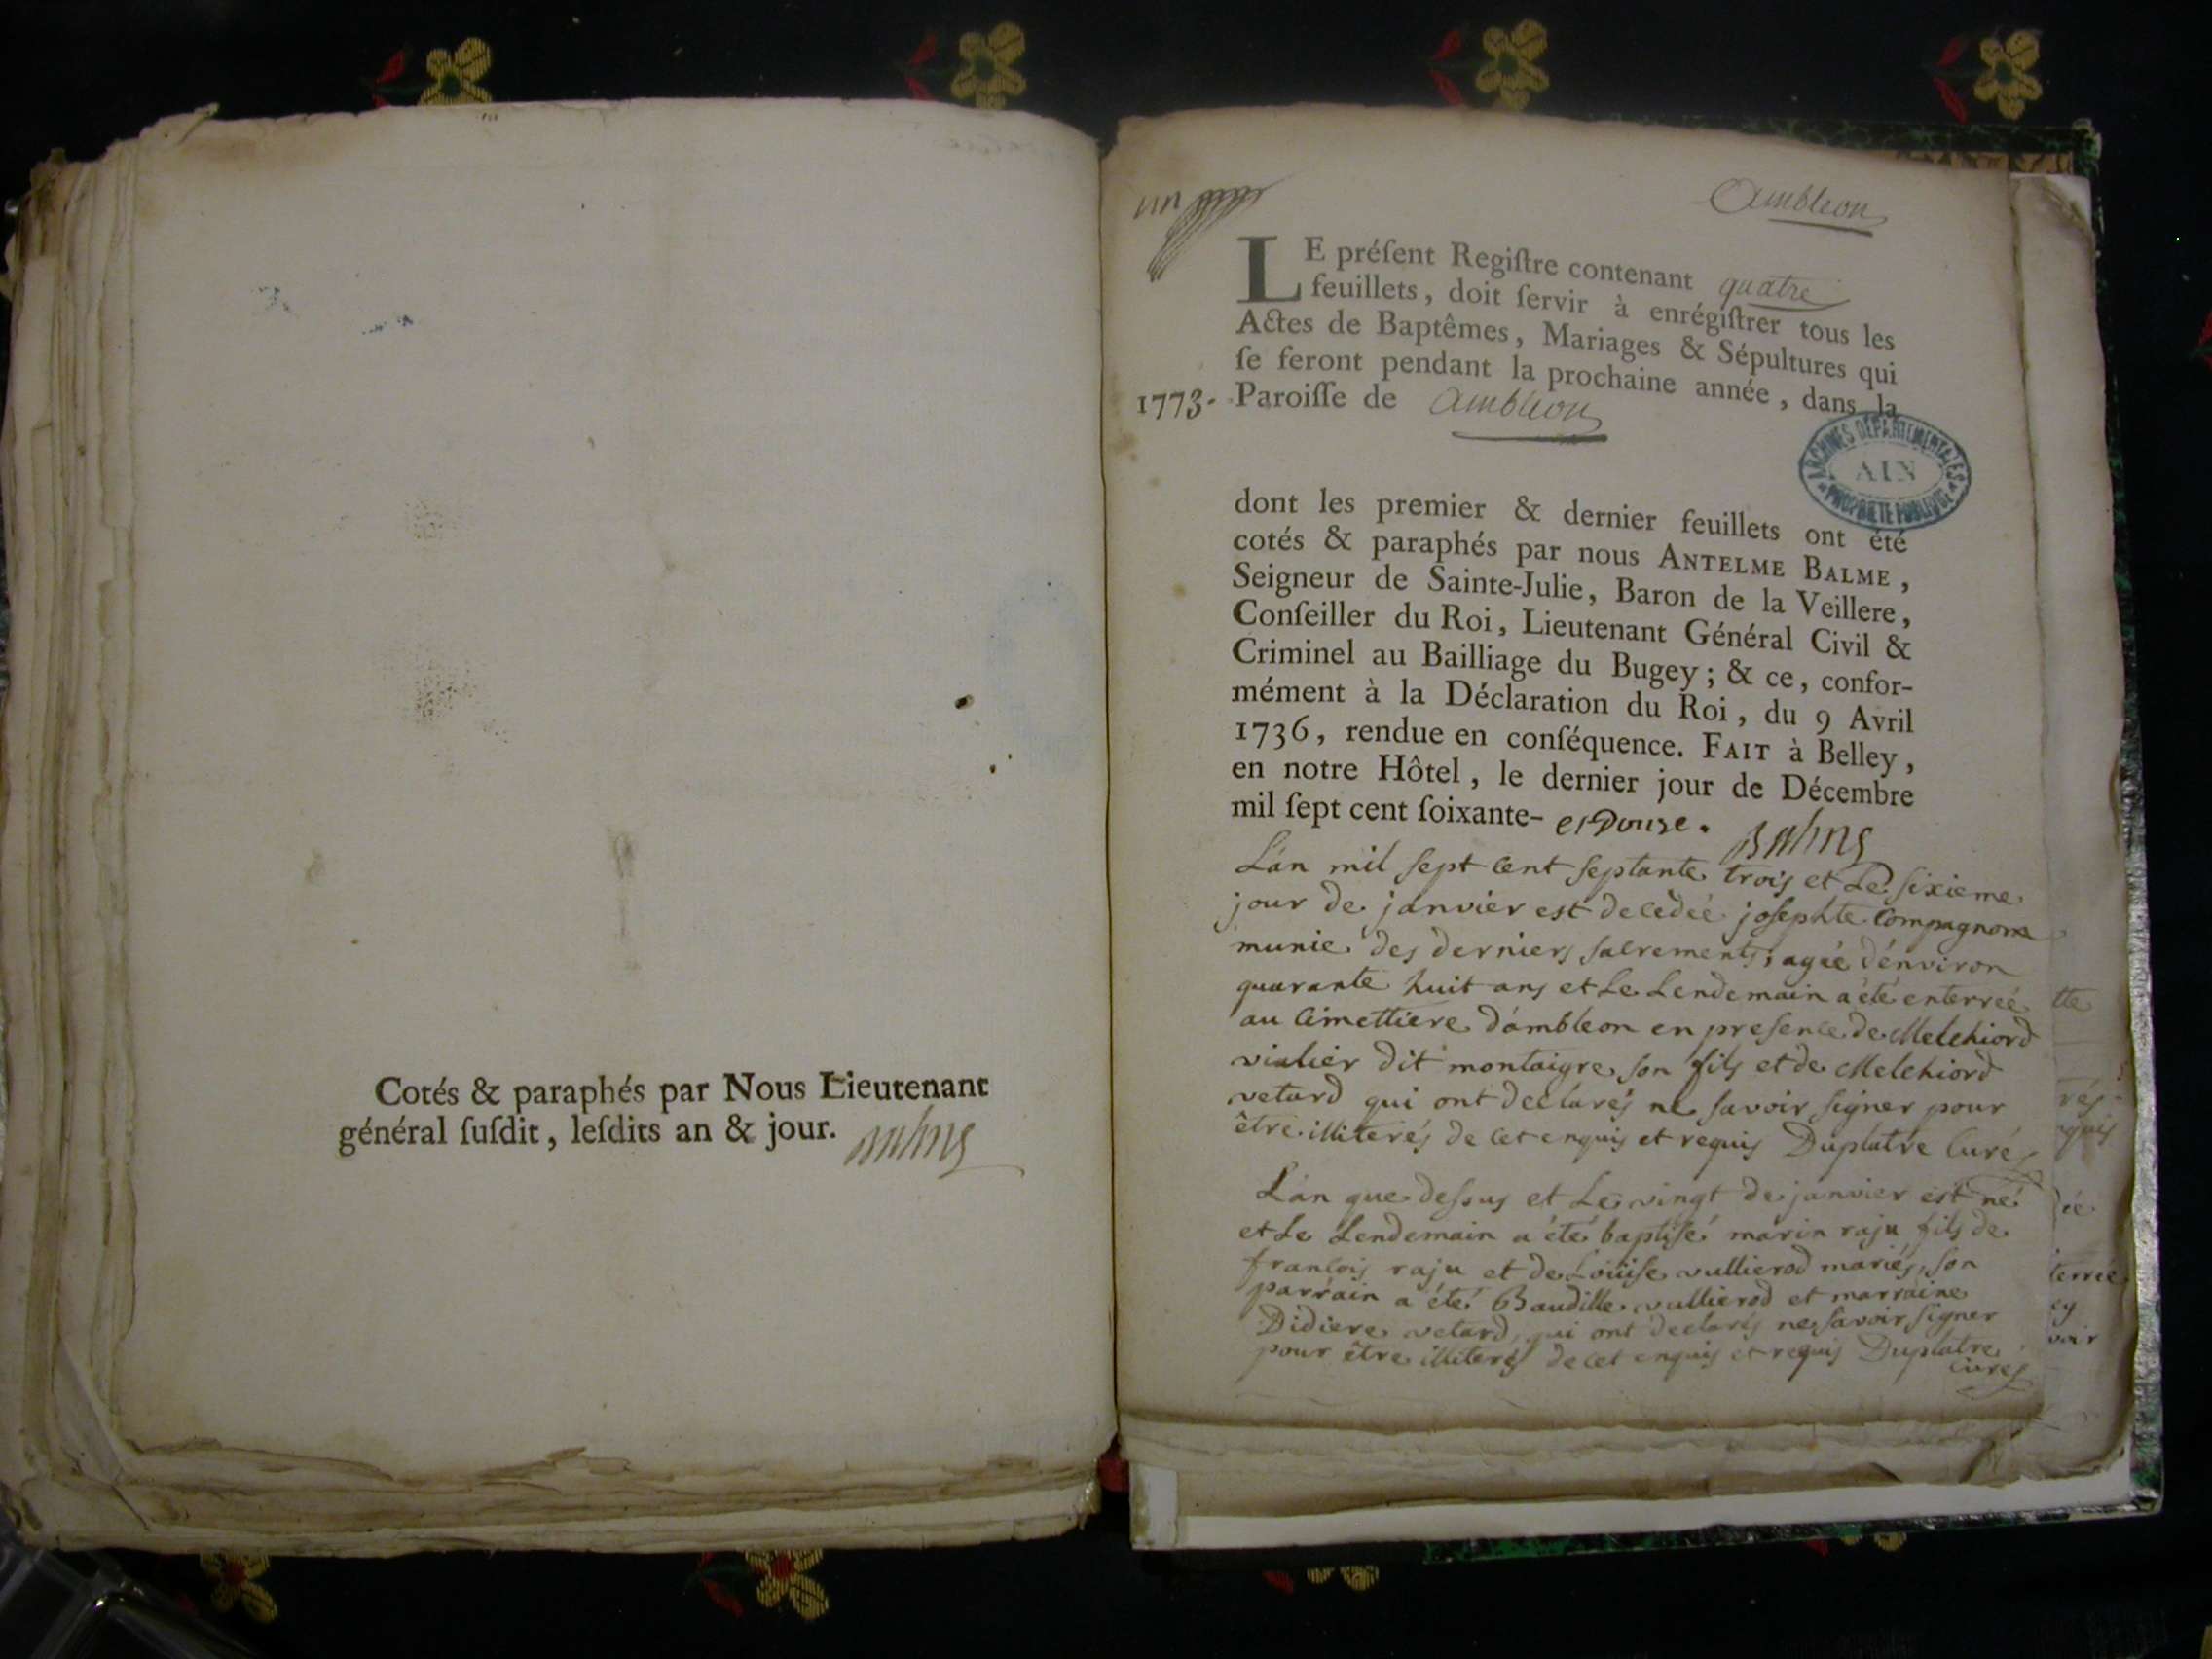 Cotés & paraphés par Nous Lieutenant
général ſuſdit, leſdits an & jour. Balme
un
Ambleon
LE préſent Regiſtre contenant quatre
feuillets, doit ſervir à enrégiſtrer tous les
Actes de Baptêmes, Mariages & Sépultures qui
ſe feront pendant la prochaine année, dans la
1773. Paroiſſe de Ambleon
ARCHIVES DÉPARTEMENTALES
AIN
PROPRIÉTÉ PUBLIQUE
dont les premier & dernier feuillets ont été
cotés & paraphés par nous ANTELME BALME,
Seigneur de Sainte-Julie, Baron de la Veillere,
Conſeiller du Roi, Lieutenant Général Civil &
Criminel au Bailliage du Bugey; & ce, confor-
mément à la Déclaration du Roi, du 9 Avril
1736, rendue en conſéquence. FAIT à Belley,
en notre Hôtel, le dernier jour de Décembre
mil ſept cent ſoixante- et Douze. Balme
L'an mil sept cent septante trois et Le sixieme
jour de janvier est decedeé josephte Compagnon
munie des derniers sacrements, ageé d'énviron
quarante huit ans et Le Lendemain a été enterreé
au cimettiere d'ambleon en presence de Melchiord
vialier dit montaigre son fils et de Melchiord
vetard qui ont declarés ne savoir signer pour
être illiterés de cet enquis et requis Duplatre Curé
L'an que dessus et Le vingt de janvier est né
et Le Lendemain a été baptisé marin raju fils de
francois raju et de Loüise vullierod mariés, son
parrain a été Baudille vullierod et marraine
Didiere vetard, qui ont declarés ne savoir signer
pour être illiterés de cet enquis et requis Duplatre
Curé
tte
rés
quis
terreé
ey
voir